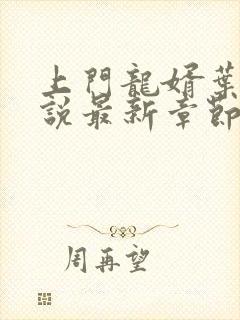 上門龍婿葉
說最新章節
周再望